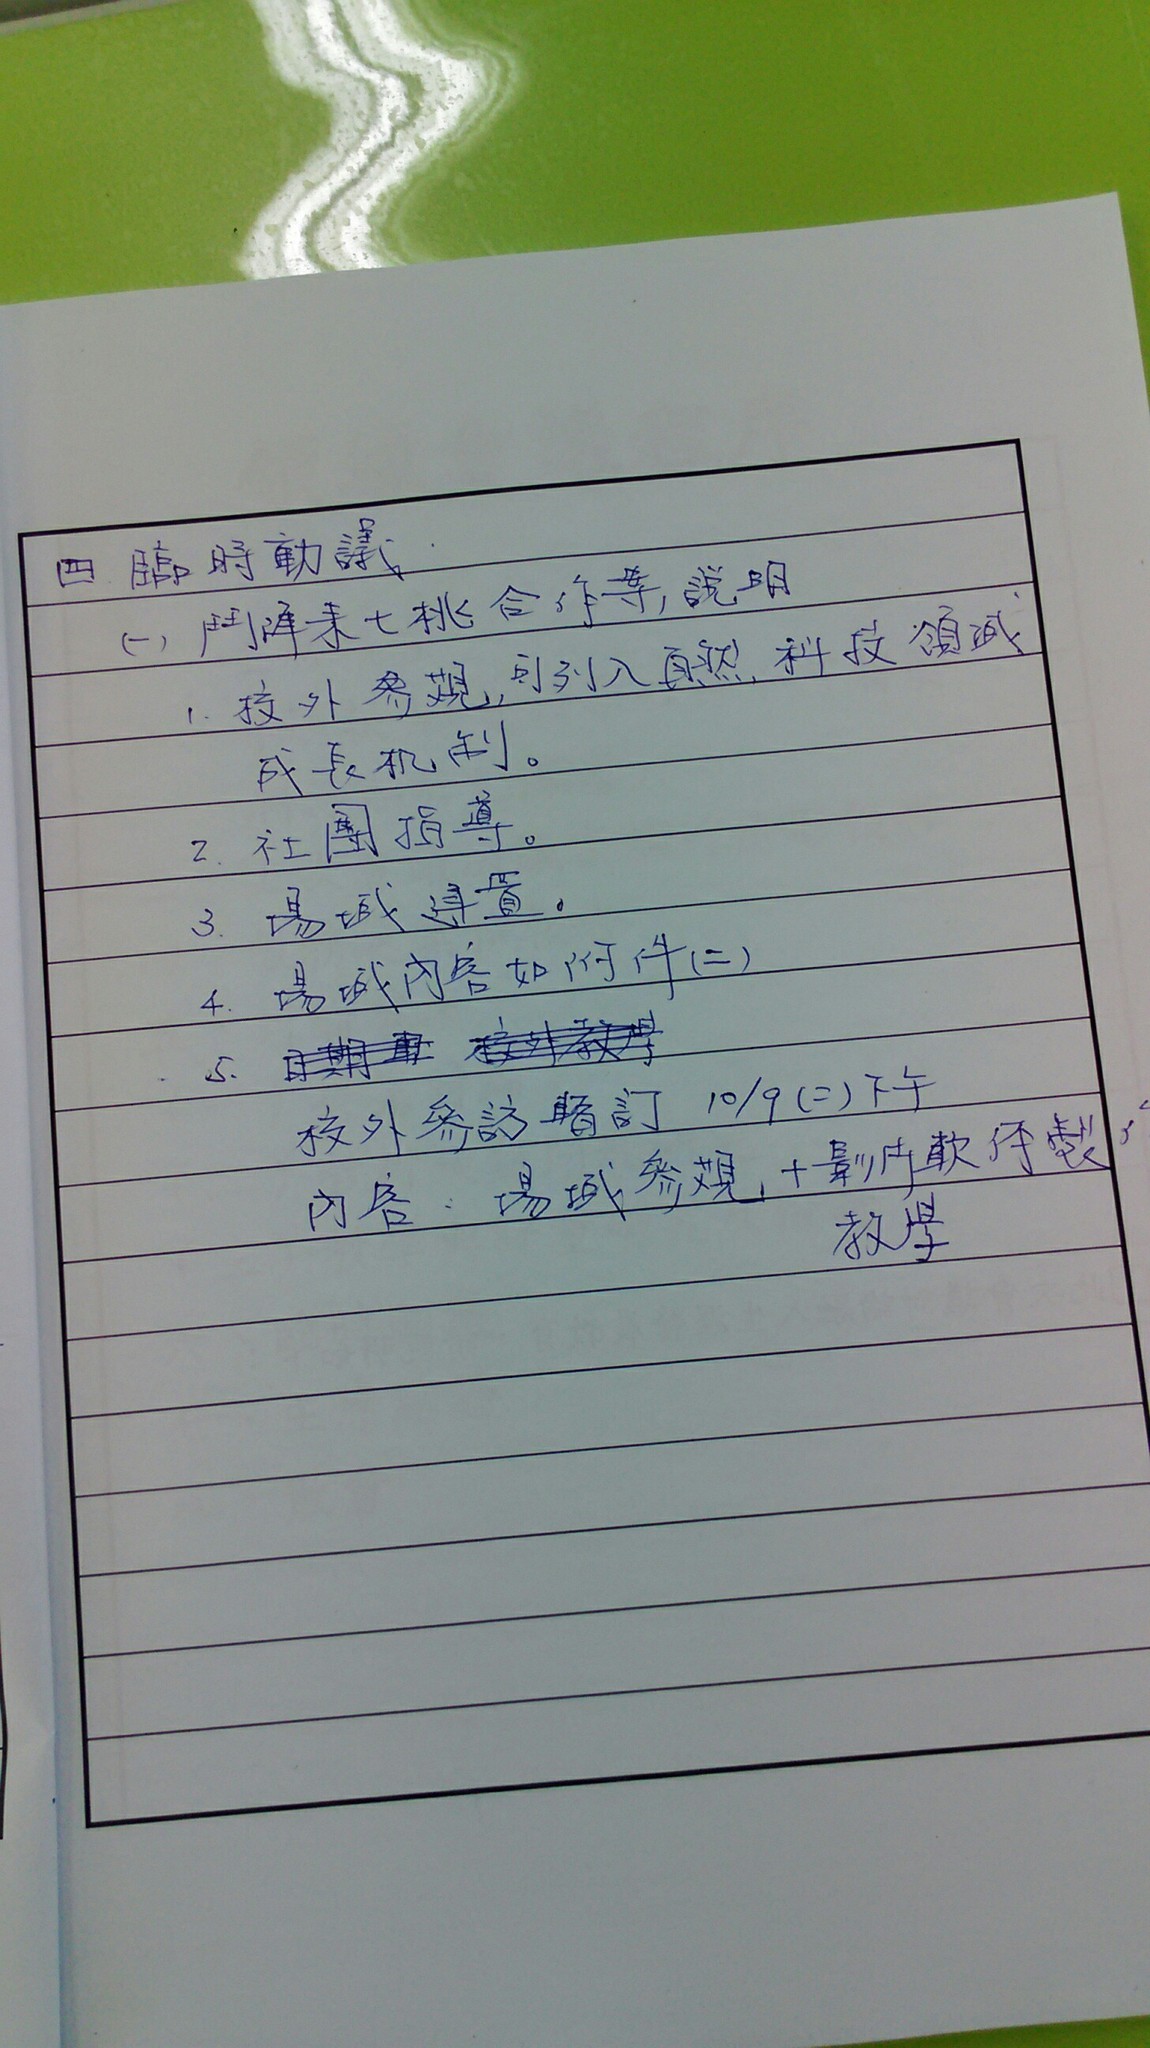 四 臨時動議
(一) 鬥陣來七桃合作案,說明
1. 校外參觀,可列入自然.科技領域
成長机制。
2. 社團指導。
3. 場域建置。
4. 場域內容如附件(二)
5. 日期 校外教學
校外參訪暫訂 10/9(二)下午
內容: 場域參觀,+影片軟体製
教學